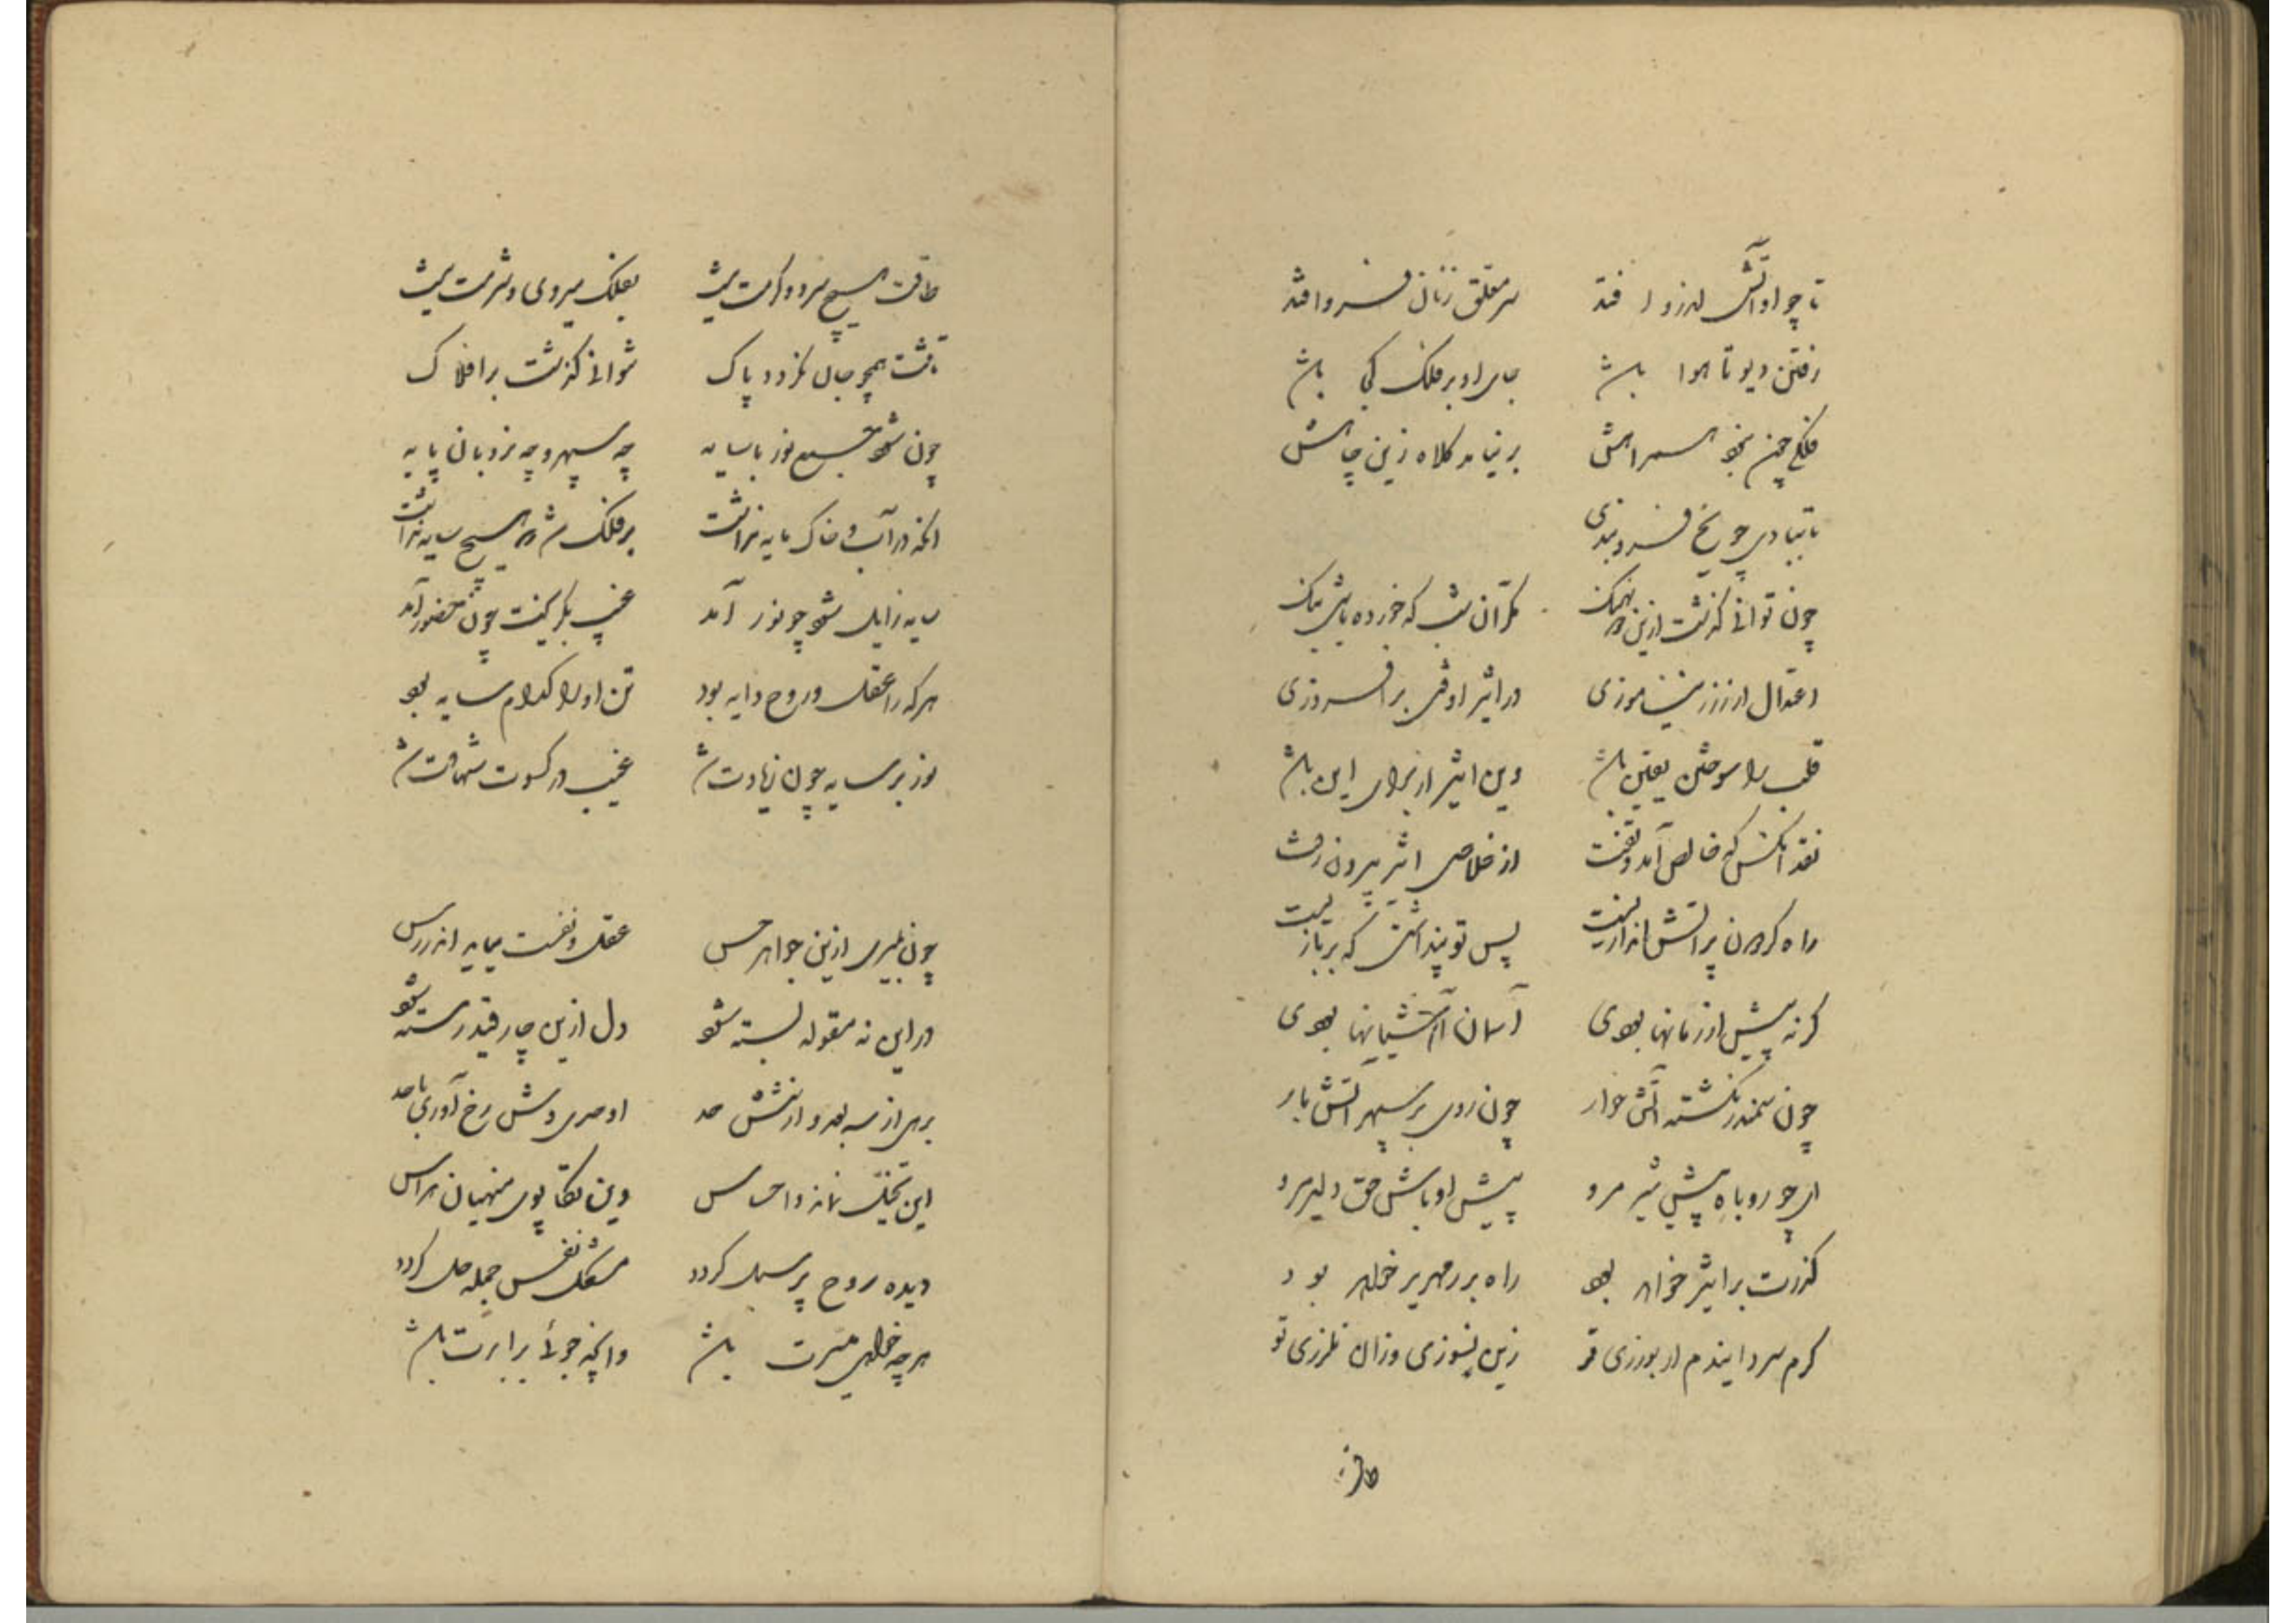 تا چو او آتش اندرو افتد سر معلق زنان فرو افتد
رفتن دیو تا هوا باشد جای او بر فلک کی باشد
برنیاید کلاه زین چاهش
تا تبادی چو یخ فسرو بندی
چون توانی گذشت ازین نمک مگر آن شب که خورده باشی نمک
اعتدال ار ز زر نیاموزی در اثیر اوفتی برافروزی
قلب را سوختن یقین باشد وین اثیر از برای این باشد
نقد آنکس که خالص آمد و تفت از خلاص اثیر بیرون رفت
راه کردون پر آتش اندازیست پس تو پنداشتی که بربازیست
گرنه پیش از زمانها بودی آسمان آشیانها بودی
چون سمندر نگشته آتش خوار چون روی بر سپهر آتش بار
ای چو روباه پیش شیر مرو پیش اوباش حق دلیر مرو
گذرت بر اثیر خواهد بود راه بر زمهریر خواهد بود
گرم و سرد ایندم ار بورزی تو زین نسوزی وزان نلرزی تو
طاقت
طاقت هیچ سرد و گرمت نیست بفلک میروی و شرمت نیست
تا تنت همچو جان نگردد پاک نتوانی گذشت بر افلاک
چون شود جسم نور با سایه چه سپهر و چه نردبان پایه
آنکه در آب و خاک مایه نداشت بر فلک شد که هیچ سایه نداشت
سایه زایل شود چو نور آمد غیب بگریخت چون حضور آمد
هر که را عقل و روح دایه بود تن او را کدام سایه بود
نور بر سایه چون زیادت شد غیب در کسوت شهادت شد
چون بمیری ازین جواهر حس عقل و نفست بماند اندر بس
در این نه مقوله بسته شود دل ازین چار قید رسته شود
برهی از سه بعد و از شش حد
این تخیل نماند و احساس وین تکاپوی منهیان هراس
دیده روح پر سبل گردد مشکل نفس جمله حل گردد
هر چه خواهی میسرت باشد وآنچه جوئی برابرت باشد